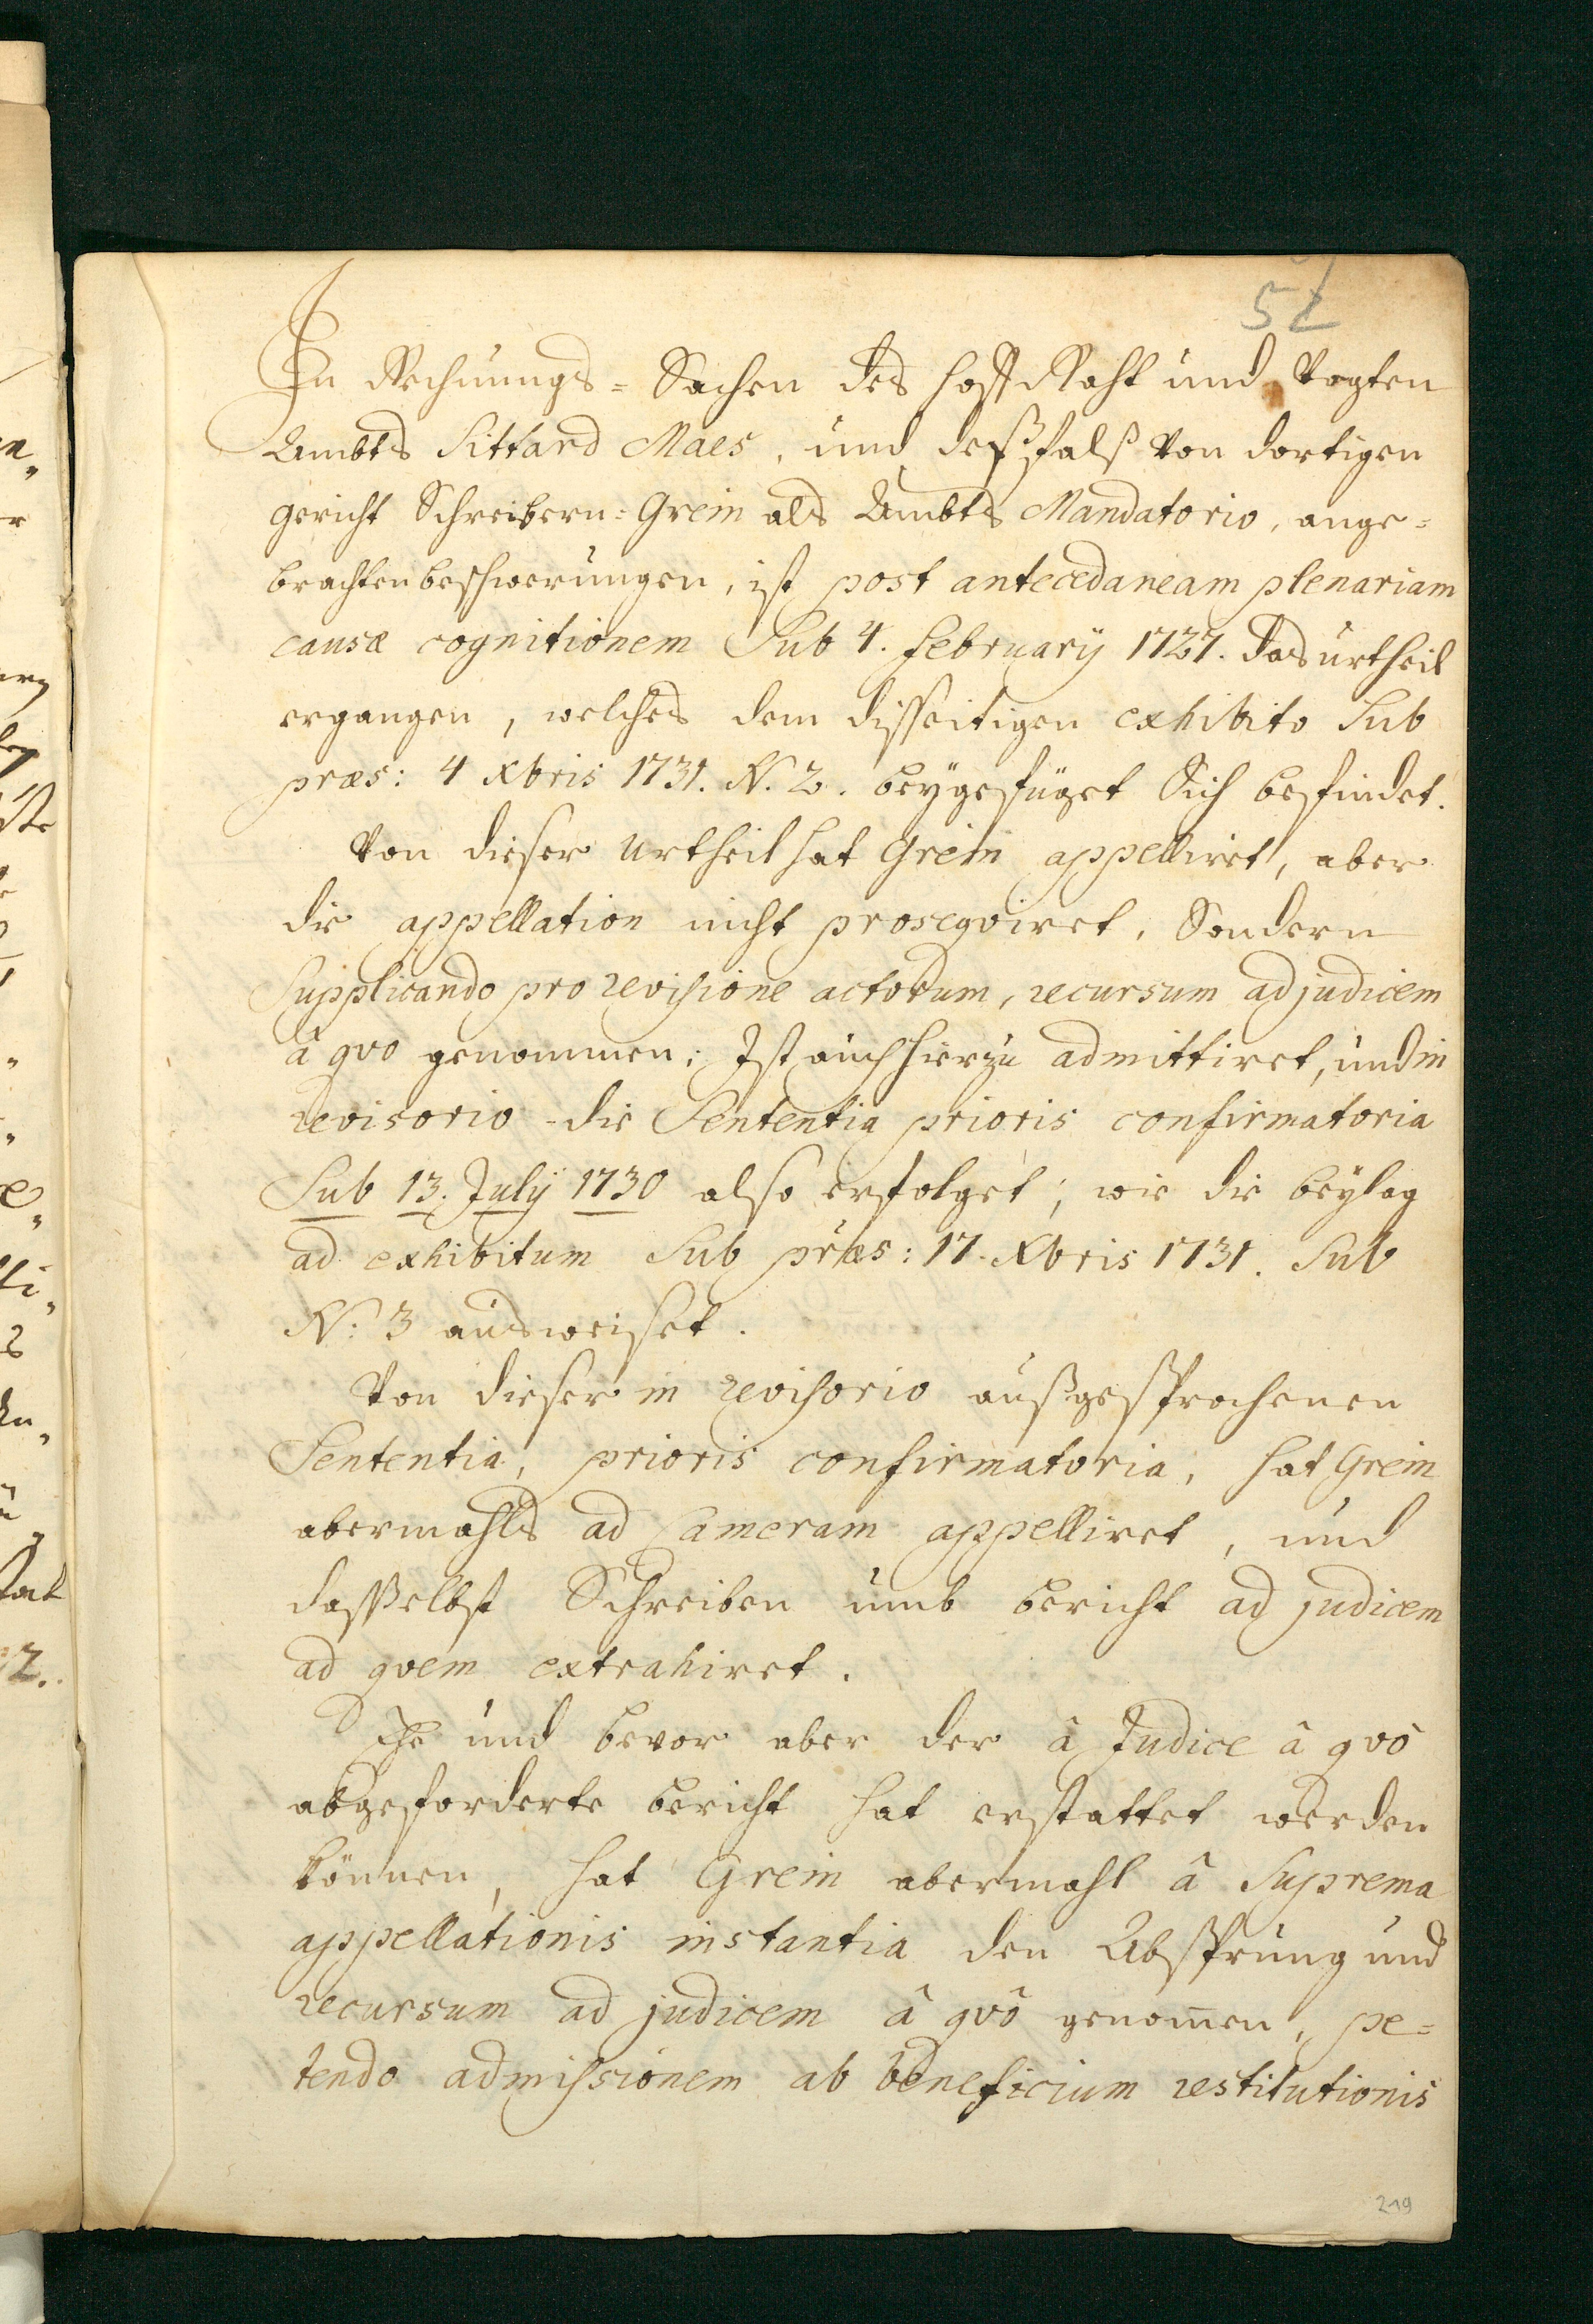 52
In Rechnungs-Sachen des Hoff Raht und Vogten
Ambts Sittard Maes, und deßfalß von dortigen
gericht Schreibern: Grein als Ambts Mandatorio, ange=
brachten beschwerungen, ist post antecedaneam plenariam
causæ cognitionem Sub 4. february 1727. das urtheil
ergangen, welches dem disseitigen exhibito Sub
præs: 4 Xbris 1731. N. 2. beygefüget Sich befindet.
Von dieser urtheil hat Grein appelliret, aber
die appellation nicht prosequiret, Sondern
Supplicando pro revisione actorum, recursum ad judicem
â quo genommen; Ist auch hierzu admittiret, und in
revisorio die Sententia prioris confirmatoria
Sub 13. July 1730 also erfolget; wie die beylag
ad exhibitum Sub præs: 17. Xbris 1731. Sub
N: 3 ausweiset.
Von dieser in revisorio außgesprochenen
Sententia, prioris confirmatoria, hat Grein
abermahls ad Cameram appelliret, und
dasselbst Schreiben umb bericht ad judicem
ad quem extrahiret.
Ehe und bevor aber der â Judice â quô
abgeforderte bericht hat erstattet werden
können, hat Grein abermahl â Suprema
appellationis instantia den Absprung und
recursum ad judicem â quô genom̄en, pe=
tendo admissionem ab beneficium restitutionis
219